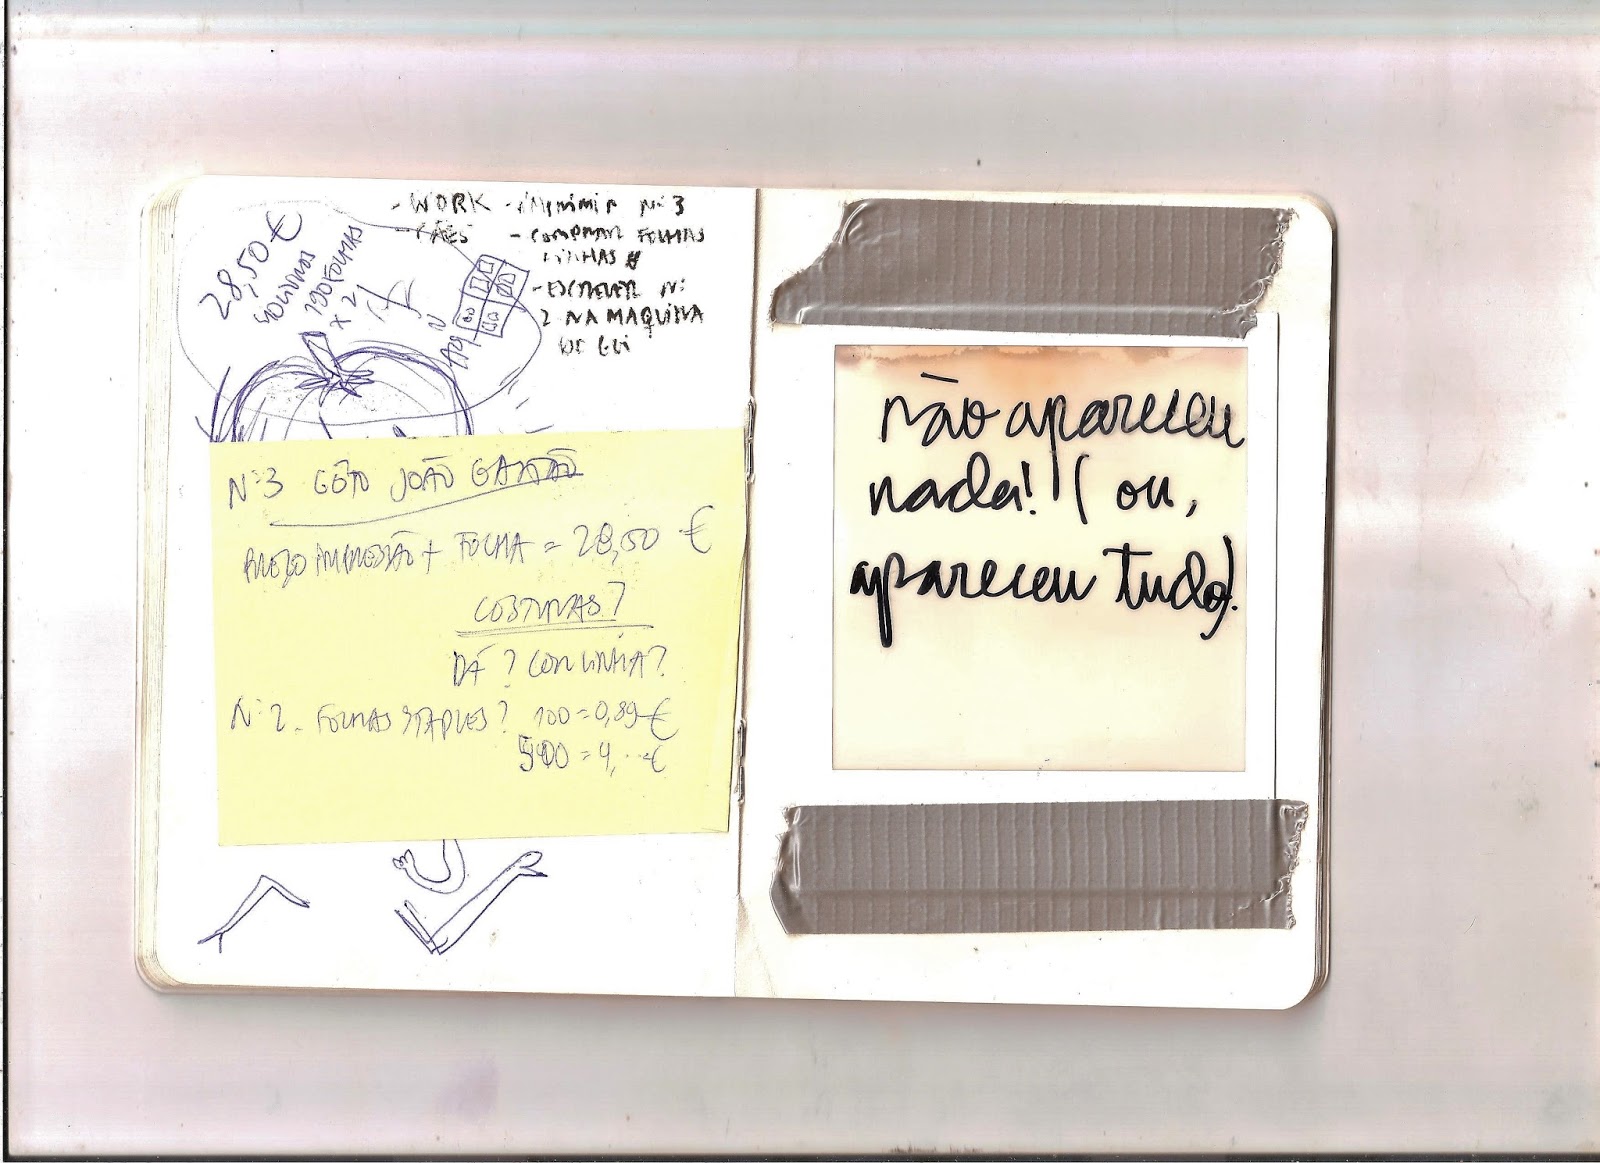 28,50 €
100 FOLHAS
x 2
- WORK
- CÃES
- IMPRIMIR Nº 3
- COMPRAR FOLHAS
- ESCREVER Nº
2 NA MAQUINA
Nº3 JOÃO
PREÇO IMPRESSÃO + FOLHA = 28,50 €
COSTURAS?
DÁ? COM LINHA?
Nº2. FOLHAS STAPLES? 100 = 0,89 €
500 = 4, ... €
não apareceu
nada! (ou,
apareceu tudo).